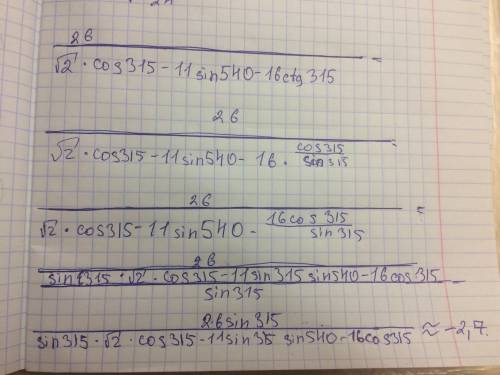 26
√2 · cos315 - 11 sin540 - 16 ctg 315 =
26
√2 · cos315 - 11 sin540 - 16 · cos315/sin315 =
26
√2 · cos315 - 11 sin540 - 16cos315/sin315 =
26
sin315 · √2 · cos315 - 11 sin315 sin540 - 16cos315
sin315
26 sin315
sin315 · √2 · cos315 - 11 sin35 sin540 - 16cos315 ≈ -2,7.